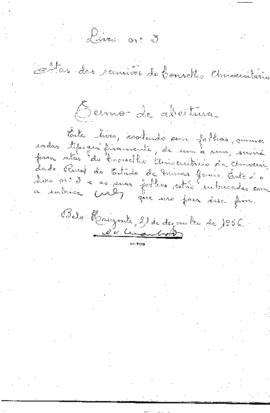 Livro nº 3
Atas das reuniões do Conselho Universitário
Termo de abertura
Este livro, contendo cem folhas, nume-
radas tipograficamente, de um a cem, servirá
para atas do Conselho Universitário da Univer-
sidade Rural do Estado de Minas Gerais. Este é o
livro nº 3 e as suas folhas estão rubricadas com
a rubrica que uso para êsse fim.
Belo Horizonte, 21 de dezembro de 1956.
REITOR